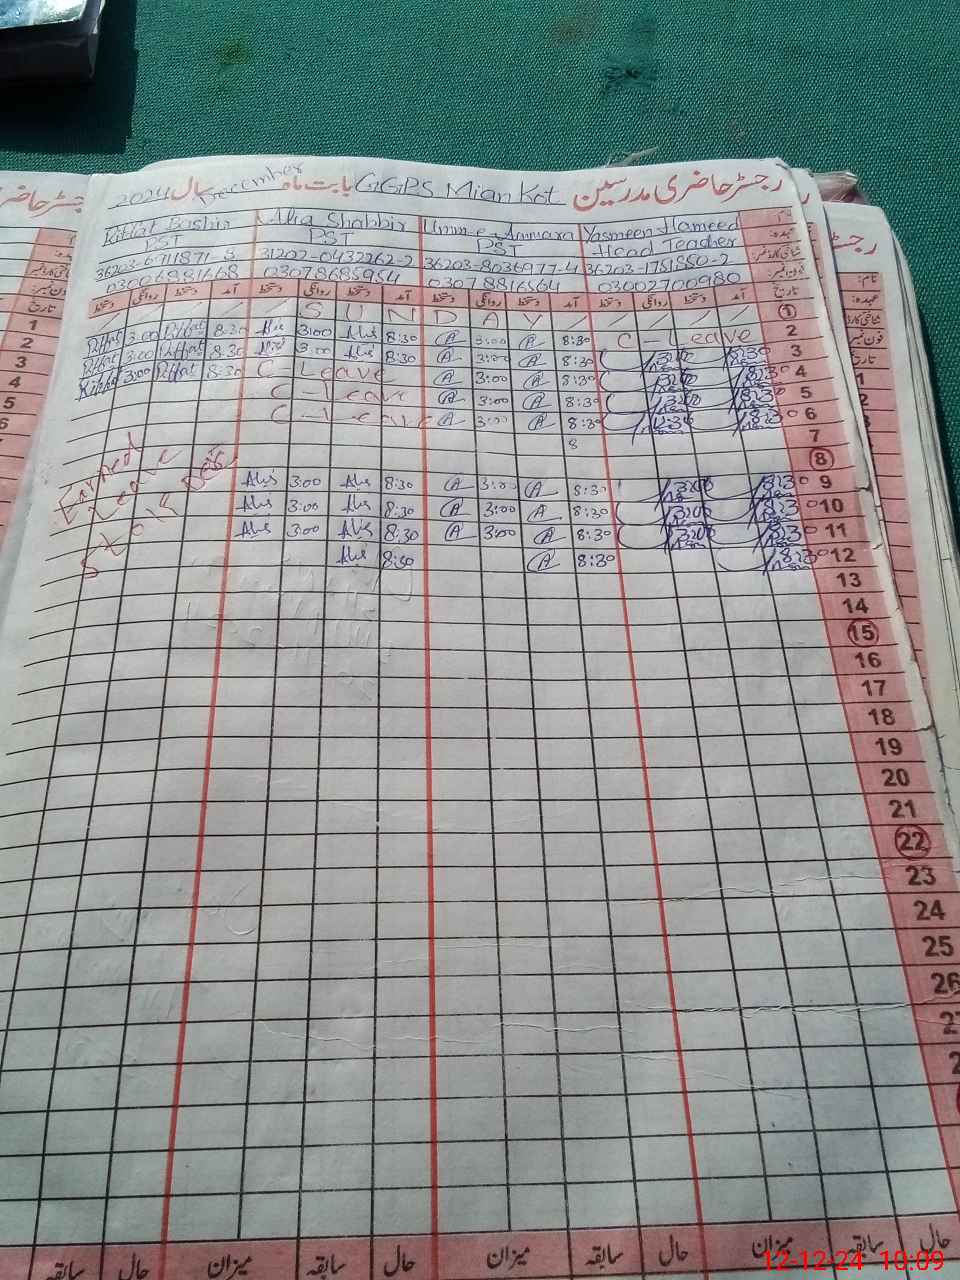 رجسٹر حاضری مدرسین GGPS Mian Kot بابت ماہ December سال 2024
Riffat Bashir Alia Shabbir Umm-e-Ammara Yasmeen Hameed
PST PST PST Head Teacher
36203-6711871-8 31202-0432262-2 36203-8036977-4 36203-1751550-2
03006981668 03078685954 03078816564 03002700980
دستخط روانگی دستخط آمد دستخط روانگی دستخط آمد دستخط روانگی دستخط آمد دستخط روانگی دستخط آمد تاریخ
S U N D A Y 1
Riffat 3:00 Riffat 8:30 Alia 3:00 Alia 8:30 A 3:00 A 8:30 C - Leave 2
Riffat 3:00 Riffat 8:30 Alia 3:00 Alia 8:30 A 3:00 A 8:30 3:00 8:30 3
Riffat 3:00 Riffat 8:30 C - Leave A 3:00 A 8:30 3:00 8:30 4
C - Leave A 3:00 A 8:30 3:00 8:30 5
C - Leave A 3:00 A 8:30 12:30 8:30 6
8 7
8
Earned Leave 5 to 18 Dec.
Alia 3:00 Alia 8:30 A 3:00 A 8:30 3:00 8:30 9
Alia 3:00 Alia 8:30 A 3:00 A 8:30 3:00 8:30 10
Alia 3:00 Alia 8:30 A 3:00 A 8:30 3:00 8:30 11
Alia 8:30 A 8:30 8:30 12
13
14
15
16
17
18
19
20
21
22
23
24
25
26
سابقہ حال میزان سابقہ حال میزان سابقہ حال میزان سابقہ حال
12-12-24 10:09